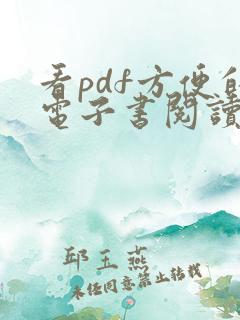 看pdf方便的
電子書閱讀
邱玉燕
未經同意禁止轉載